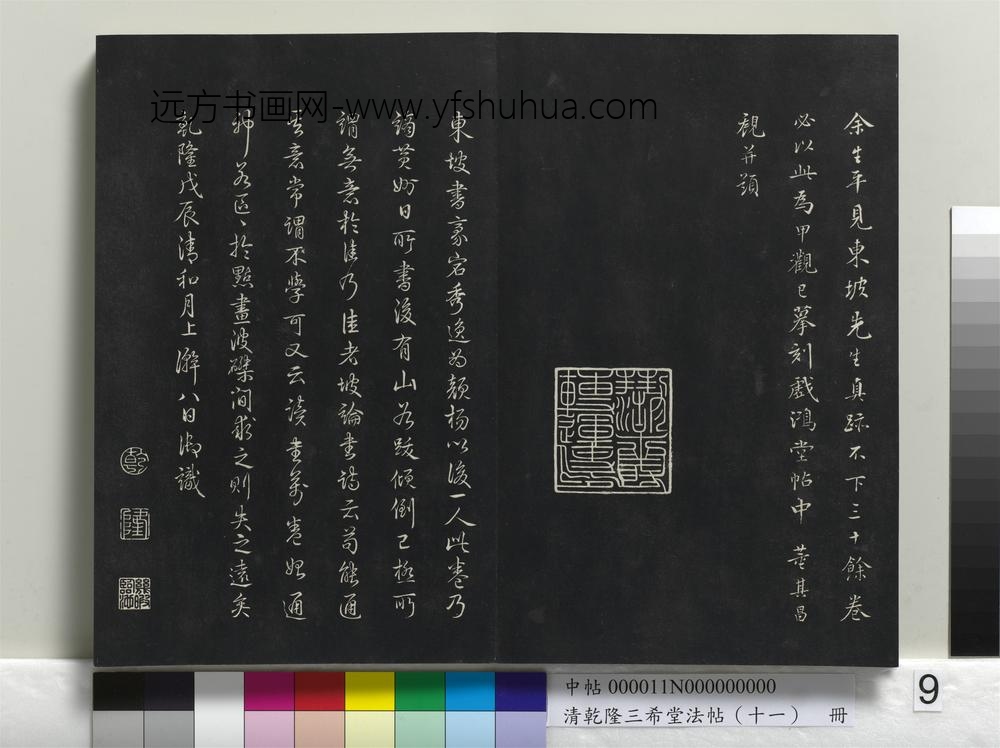 远方书画网-www.yfshuhua.com
余生平見東坡先生真跡不下三十餘卷
必以此為甲觀已摹刻戲鴻堂帖中 董其昌
觀并題
東坡書豪宕秀逸為顏楊以後一人此卷乃
謫黃州日所書後有山谷跋傾倒已極所
謂無意於佳乃佳者坡論書詩云苟能通
其意常謂不學可又云讀書萬卷始通
神若區〻於點畫波磔間求之則失之遠矣
乾隆戊辰清和月上澣八日御識
乾
隆
中帖 000011N000000000
清乾隆三希堂法帖（十一） 冊
9